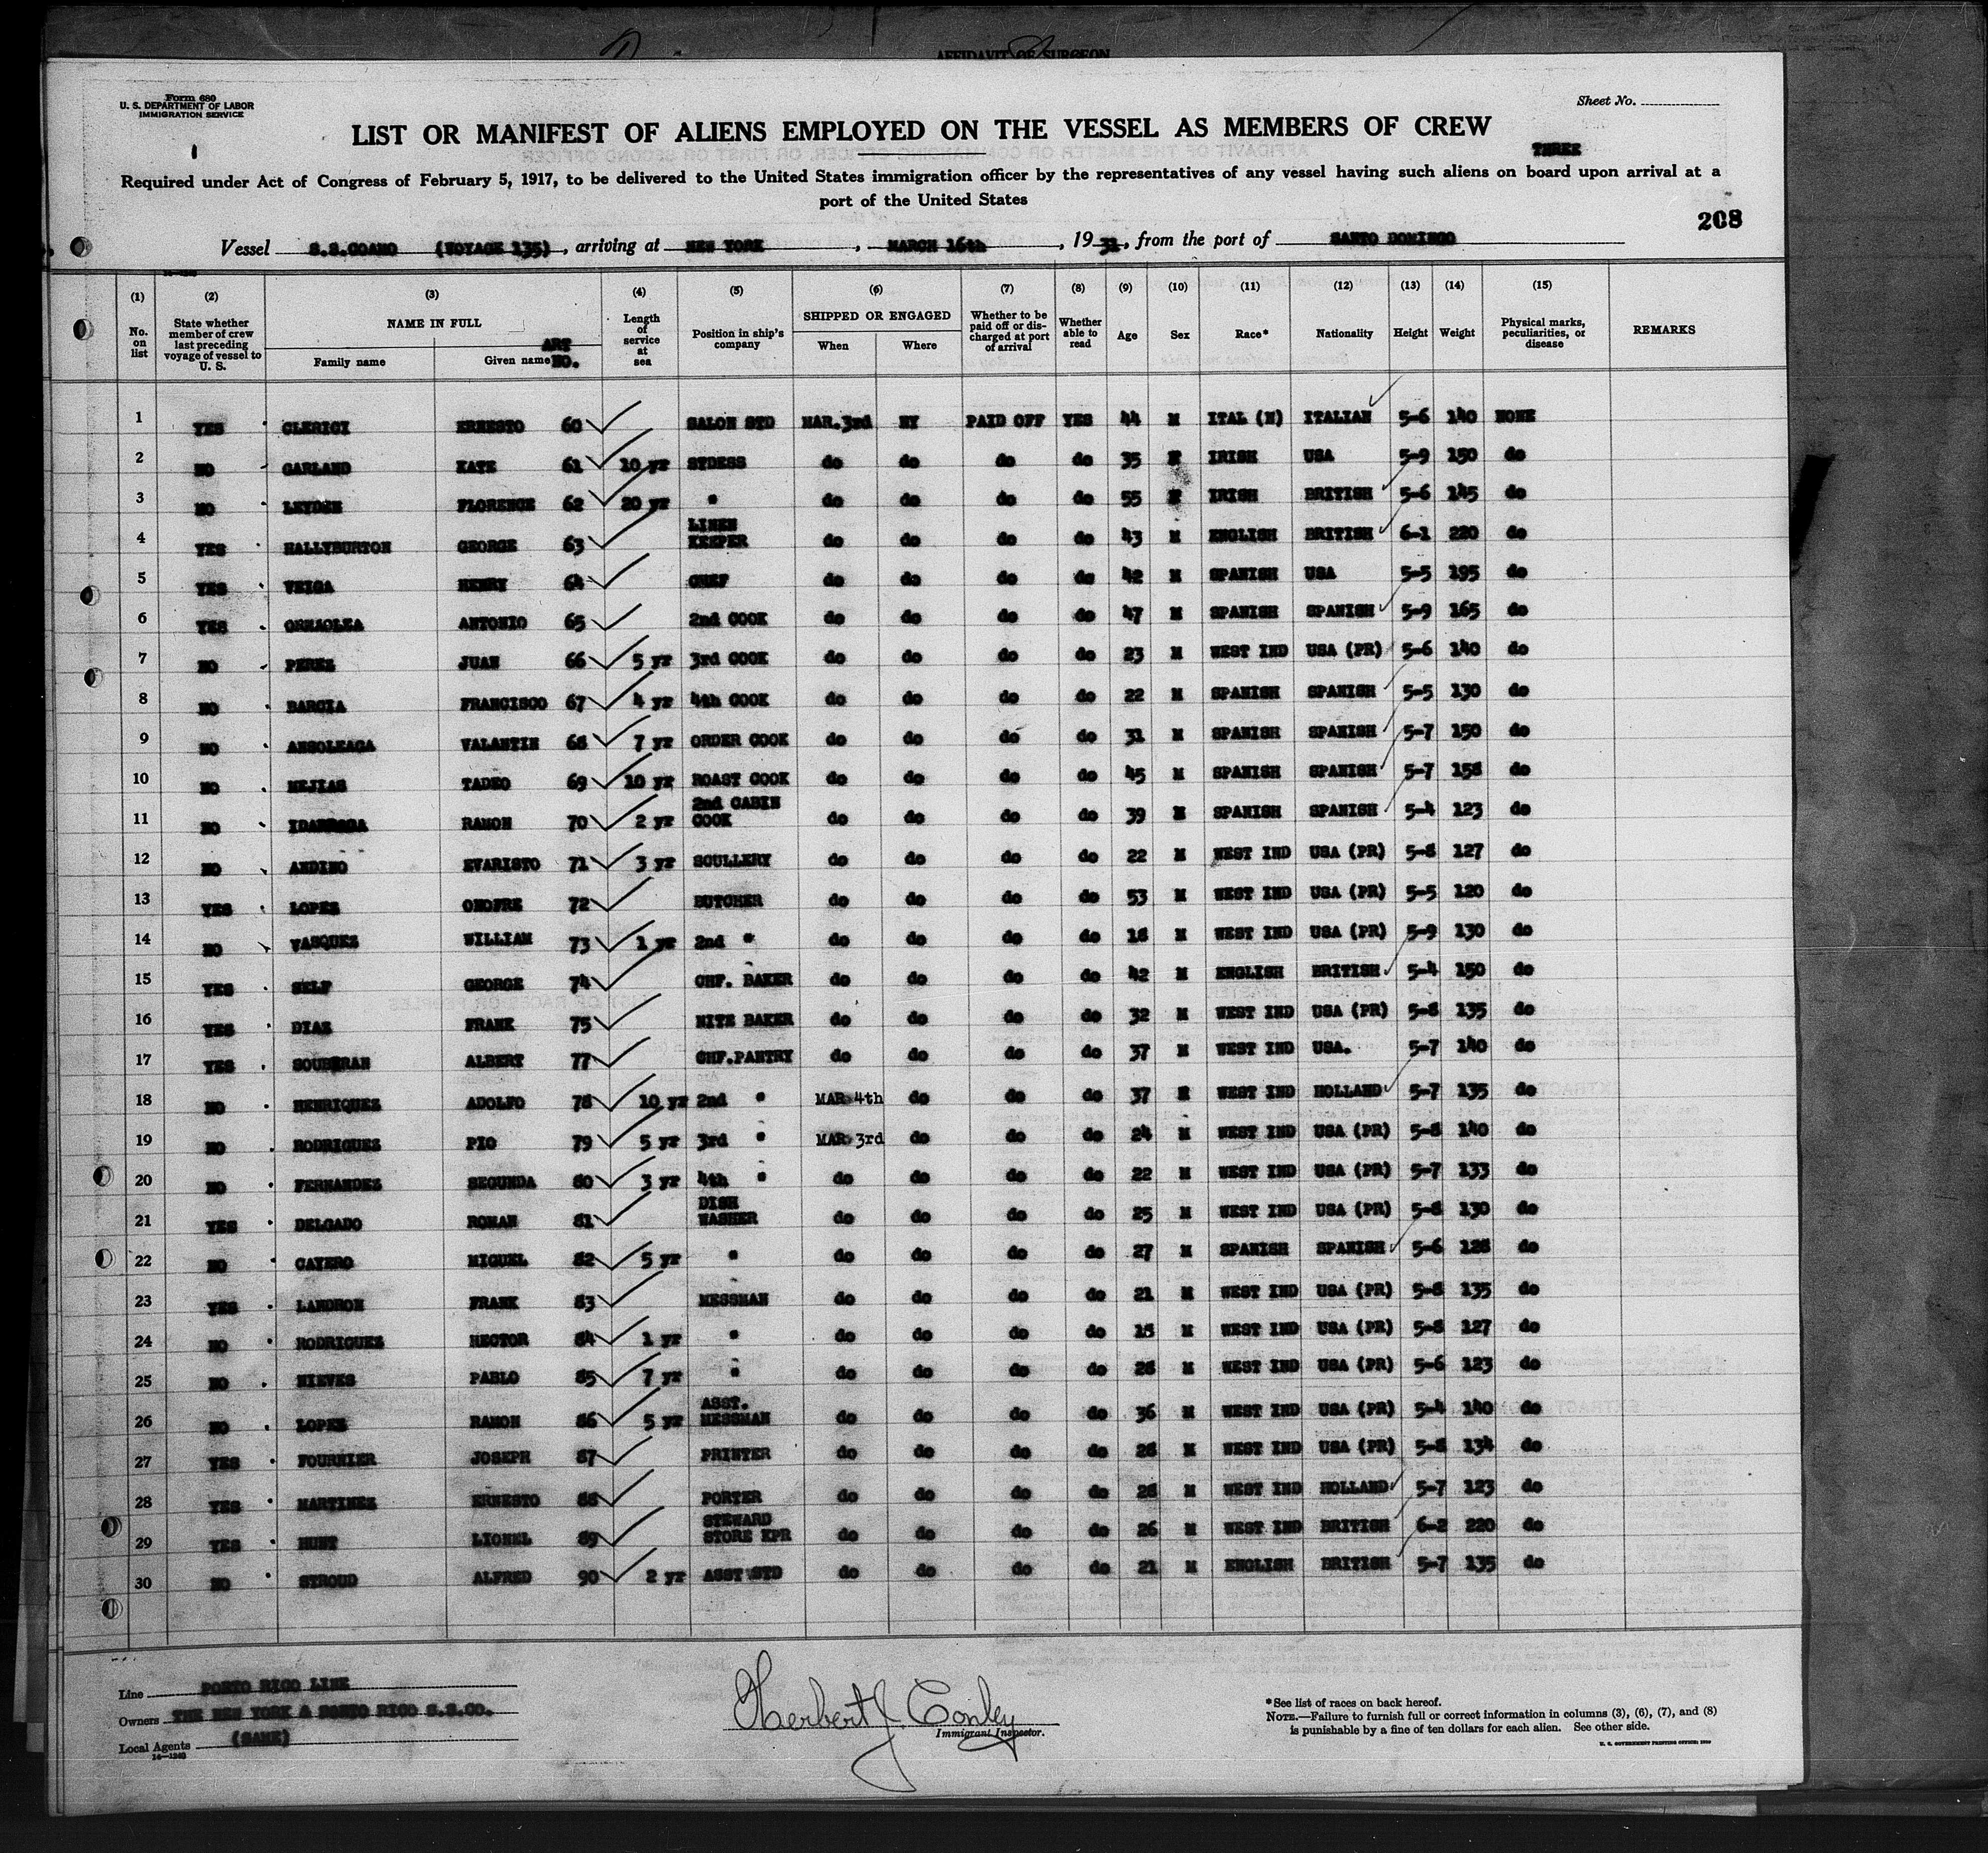 AFFIDAVIT OF SURGEON
Form 680
U. S. DEPARTMENT OF LABOR
IMMIGRATION SERVICE
Sheet No.
LIST OR MANIFEST OF ALIENS EMPLOYED ON THE VESSEL AS MEMBERS OF CREW
THREE
Required under Act of Congress of February 5, 1917, to be delivered to the United States immigration officer by the representatives of any vessel having such aliens on board upon arrival at a
port of the United States
208
Vessel S.S.COAMO (VOYAGE 135), arriving at NEW YORK, MARCH 16th, 1931, from the port of SANTO DOMINGO
(1) (2) (3) (4) (5) (6) (7) (8) (9) (10) (11) (12) (13) (14) (15)
No. on list State whether member of crew last preceding voyage of vessel to U. S. NAME IN FULL Family name Given name ART NO. Length of service at sea Position in ship's company SHIPPED OR ENGAGED When Where Whether to be paid off or discharged at port of arrival Whether able to read Age Sex Race* Nationality Height Weight Physical marks, peculiarities, or disease REMARKS
1 YES CLERICI ERNESTO 60 SALON STD MAR.3rd NY PAID OFF YES 44 M ITAL (N) ITALIAN 5-6 140 NONE
2 NO GARLAND KATE 61 10 yr STDESS do do do do 35 IRISH USA 5-9 150 do
3 NO LEYDEN FLORENCE 62 20 yr " do do do do 55 IRISH BRITISH 5-6 145 do
4 YES HALLYBURTON GEORGE 63 LINEN KEEPER do do do do 43 M ENGLISH BRITISH 6-1 220 do
5 YES VEIGA HENRY 64 CHEF do do do do 42 M SPANISH USA 5-5 195 do
6 YES ORMAOLEA ANTONIO 65 2nd COOK do do do do 47 M SPANISH SPANISH 5-9 165 do
7 NO PEREZ JUAN 66 5 yr 3rd COOK do do do do 23 M WEST IND USA (PR) 5-6 140 do
8 NO BARCIA FRANCISCO 67 4 yr 4th COOK do do do do 22 M SPANISH SPANISH 5-5 130 do
9 NO ANSOLEAGA VALANTIN 68 7 yr ORDER COOK do do do do 31 M SPANISH SPANISH 5-7 150 do
10 NO MEJIAS TADEO 69 10 yr ROAST COOK do do do do 45 M SPANISH SPANISH 5-7 158 do
11 NO RAMON 70 2 yr 2nd CABIN COOK do do do do 39 M SPANISH SPANISH 5-4 123 do
12 NO ANDINO EVARISTO 71 3 yr SCULLERY do do do do 22 M WEST IND USA (PR) 5-8 127 do
13 YES LOPEZ ONOFRE 72 BUTCHER do do do do 53 M WEST IND USA (PR) 5-5 120 do
14 NO VASQUEZ WILLIAM 73 1 yr 2nd " do do do do 18 M WEST IND USA (PR) 5-9 130 do
15 YES SELF GEORGE 74 CHF. BAKER do do do do 42 M ENGLISH BRITISH 5-4 150 do
16 YES DIAZ FRANK 75 NITE BAKER do do do do 32 M WEST IND USA (PR) 5-8 135 do
17 YES SOUBERAN ALBERT 77 CHF.PANTRY do do do do 37 M WEST IND USA. 5-7 140 do
18 NO HENRIQUEZ ADOLFO 78 10 yr 2nd " MAR 4th do do do 37 M WEST IND HOLLAND 5-7 135 do
19 NO RODRIGUEZ PIO 79 5 yr 3rd " MAR 3rd do do do 24 M WEST IND USA (PR) 5-8 140 do
20 NO FERNANDEZ SEGUNDA 80 3 yr 4th " do do do do 22 M WEST IND USA (PR) 5-7 133 do
21 YES DELGADO ROMAN 81 DISH WASHER do do do do 25 M WEST IND USA (PR) 5-8 130 do
22 NO CAYERO MIGUEL 82 5 yr " do do do do 27 M SPANISH SPANISH 5-6 128 do
23 YES LANDRON FRANK 83 MESSMAN do do do do 21 M WEST IND USA (PR) 5-8 135 do
24 NO RODRIGUEZ HECTOR 84 1 yr " do do do do 18 M WEST IND USA (PR) 5-8 127 do
25 NO NIEVES PABLO 85 7 yr " do do do do 28 M WEST IND USA (PR) 5-6 123 do
26 NO LOPEZ RAMON 86 5 yr ASST. MESSMAN do do do do 36 M WEST IND USA (PR) 5-4 140 do
27 YES FOURNIER JOSEPH 87 PRINTER do do do do 28 M WEST IND USA (PR) 5-8 134 do
28 YES MARTINEZ ERNESTO 88 PORTER do do do do 28 M WEST IND HOLLAND 5-7 123 do
29 YES HUNT LIONEL 89 STEWARD STORE KPR do do do do 26 M WEST IND BRITISH 6-2 220 do
30 NO STROUD ALFRED 90 2 yr ASST STD do do do do 21 M ENGLISH BRITISH 5-7 135 do
Line PORTO RICO LINE
Owners THE NEW YORK & PORTO RICO S.S.CO.
Local Agents (SAME)
16-1240
Herbert J. Conley
Immigrant Inspector.
*See list of races on back hereof.
NOTE.—Failure to furnish full or correct information in columns (3), (6), (7), and (8)
is punishable by a fine of ten dollars for each alien. See other side.
U. S. GOVERNMENT PRINTING OFFICE: 1930